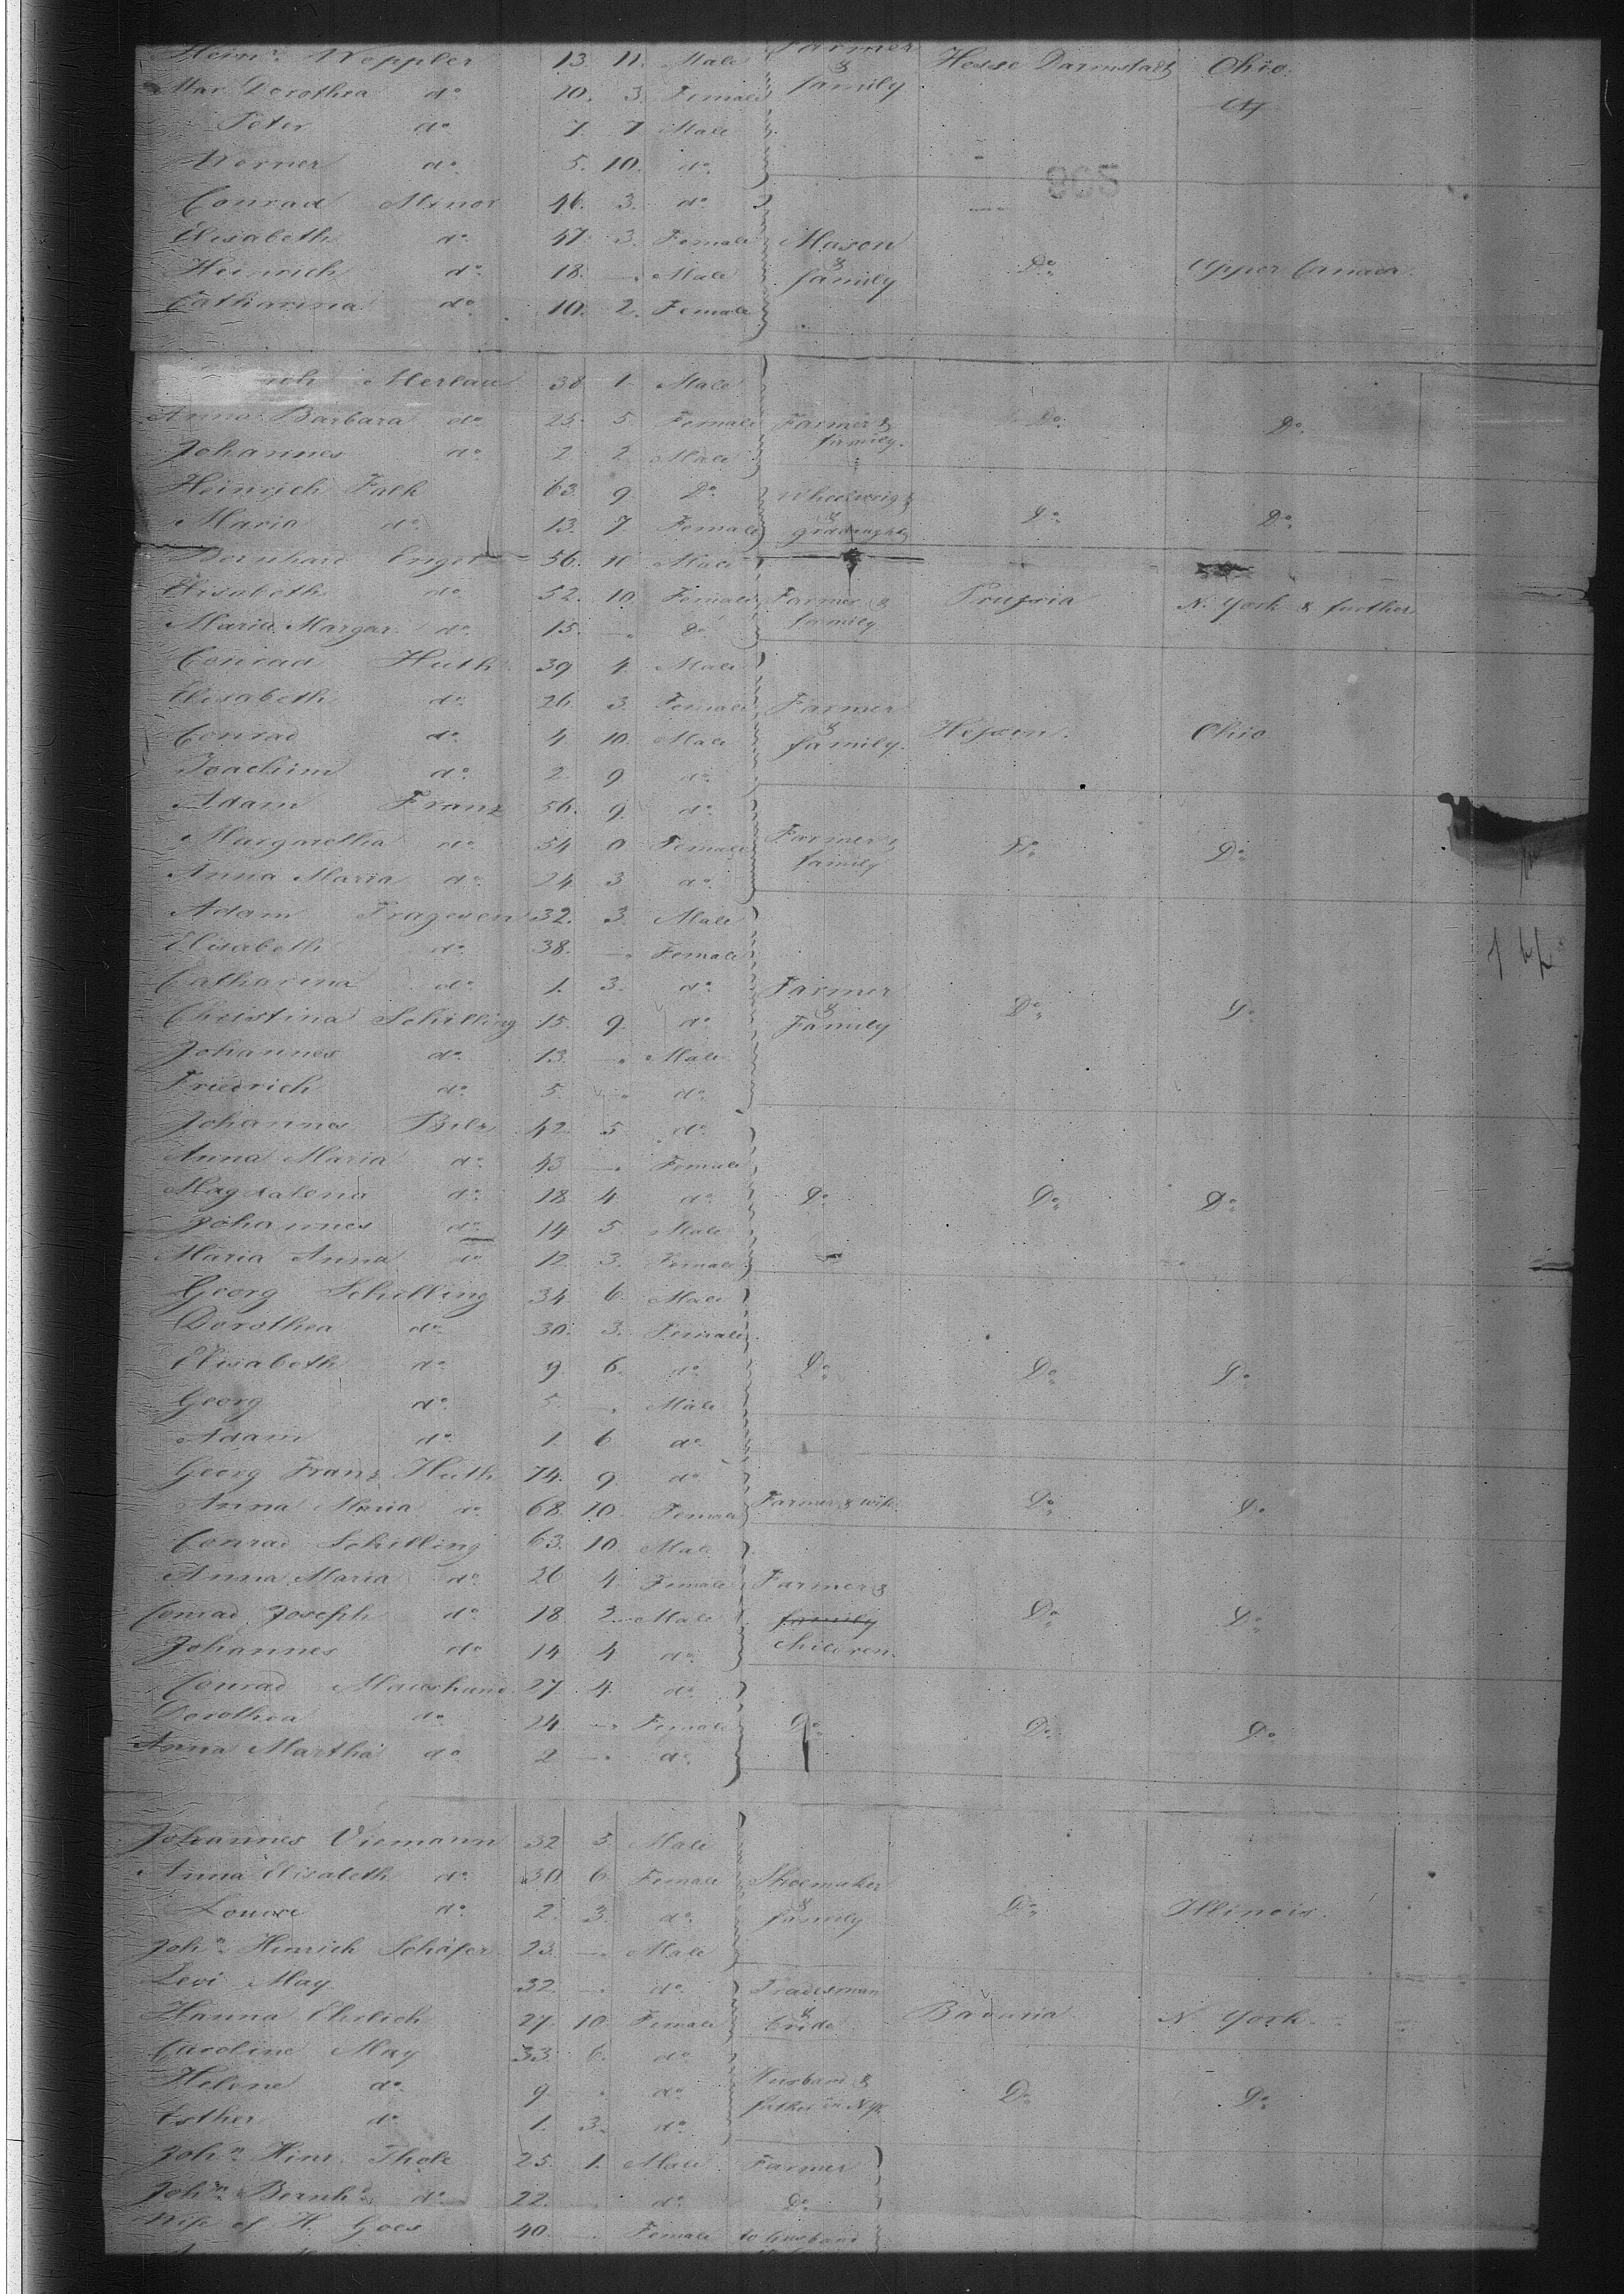 Heinr. Weppler 13. 11. Male Farmer & family Hesse Darmstadt Ohio
Mar Dorothea do 10. 3. Female
Peter do 7. 7 Male
Werner do 5. 10. do
Conrad Minor 46. 3. do
Elisabeth do 47. 3. Female Mason & family Do Upper Canada
Heinrich do 18. — Male
Catharina do 10. 2. Female
Merlau 38 1. Male
Anna Barbara do 25. 5. Female Farmer & family. Do Do
Johannes do 2 2 Male
Heinrich Falk 63. 9. Do
Maria do 13. 7 Female Do Do
Bernhard Engel 56. 11 Male
Elisabeth do 52. 10. Female Farmer & family Prussia N. York & further
Maria Margar. do 15. — Do
Conrad Huth 39 4. Male
Elisabeth do 26. 3. Female Farmer & family. Hessen. Ohio
Conrad do 4 10. Male
Joachim do 2. 9 do
Adam Franz 56. 9. do
Margaretha do 54 0 Female Farmer & family Do Do
Anna Maria do 24 3 do
Adam 32. 3. Male
Elisabeth do 38. — Female
Catharina do 1. 3. do Farmer & Family Do Do
Christina Schilling 15. 9. do
Johannes do 13. — Male
Friedrich do 5. — do
Johannes 42 5 do
Anna Maria do 43 — Female
Magdalena do 18 4. do Do Do Do
Johannes do 14 5. Male
Maria Anna do 12 3. Female
Georg Schilling 34 6. Male
Dorothea do 30. 3. Female
Elisabeth do 9. 6. do Do Do Do
Georg do 5. — Male
Adam do 1. 6 do
Georg Franz Huth 74. 9. do
Anna Maria do 68. 10. Female Farmer & wife Do Do
Conrad Schilling 63. 10. Male
Anna Maria do 26 4. Female Farmer &
Conrad Joseph do 18. 2. Male family Do Do
Johannes do 14 4 do children.
Conrad 27. 4. do
Dorothea do 24. — Female Do Do Do
Anna Martha do 2 — do
Johannes Viemann 32 5 Male
Anna Elisabeth do 30 6. Female Shoemaker & family Do Illinois.
Louise do 2. 3. do
John. Hinrich Schäfer 23. — Male
Levi May 32. — do Tradesman & bride Bavaria N. York
Hanna Ehrlich 27. 10. Female
Caroline May 33. 6. do
Helene do 9 — do Husband & father in N.Yk Do Do
Esther do 1. 3. do
John Hinr. Thole 25. 1. Male Farmer
Johnn Bernhd do 22. — do Do
Wife of H. Goes 40. — Female to husband